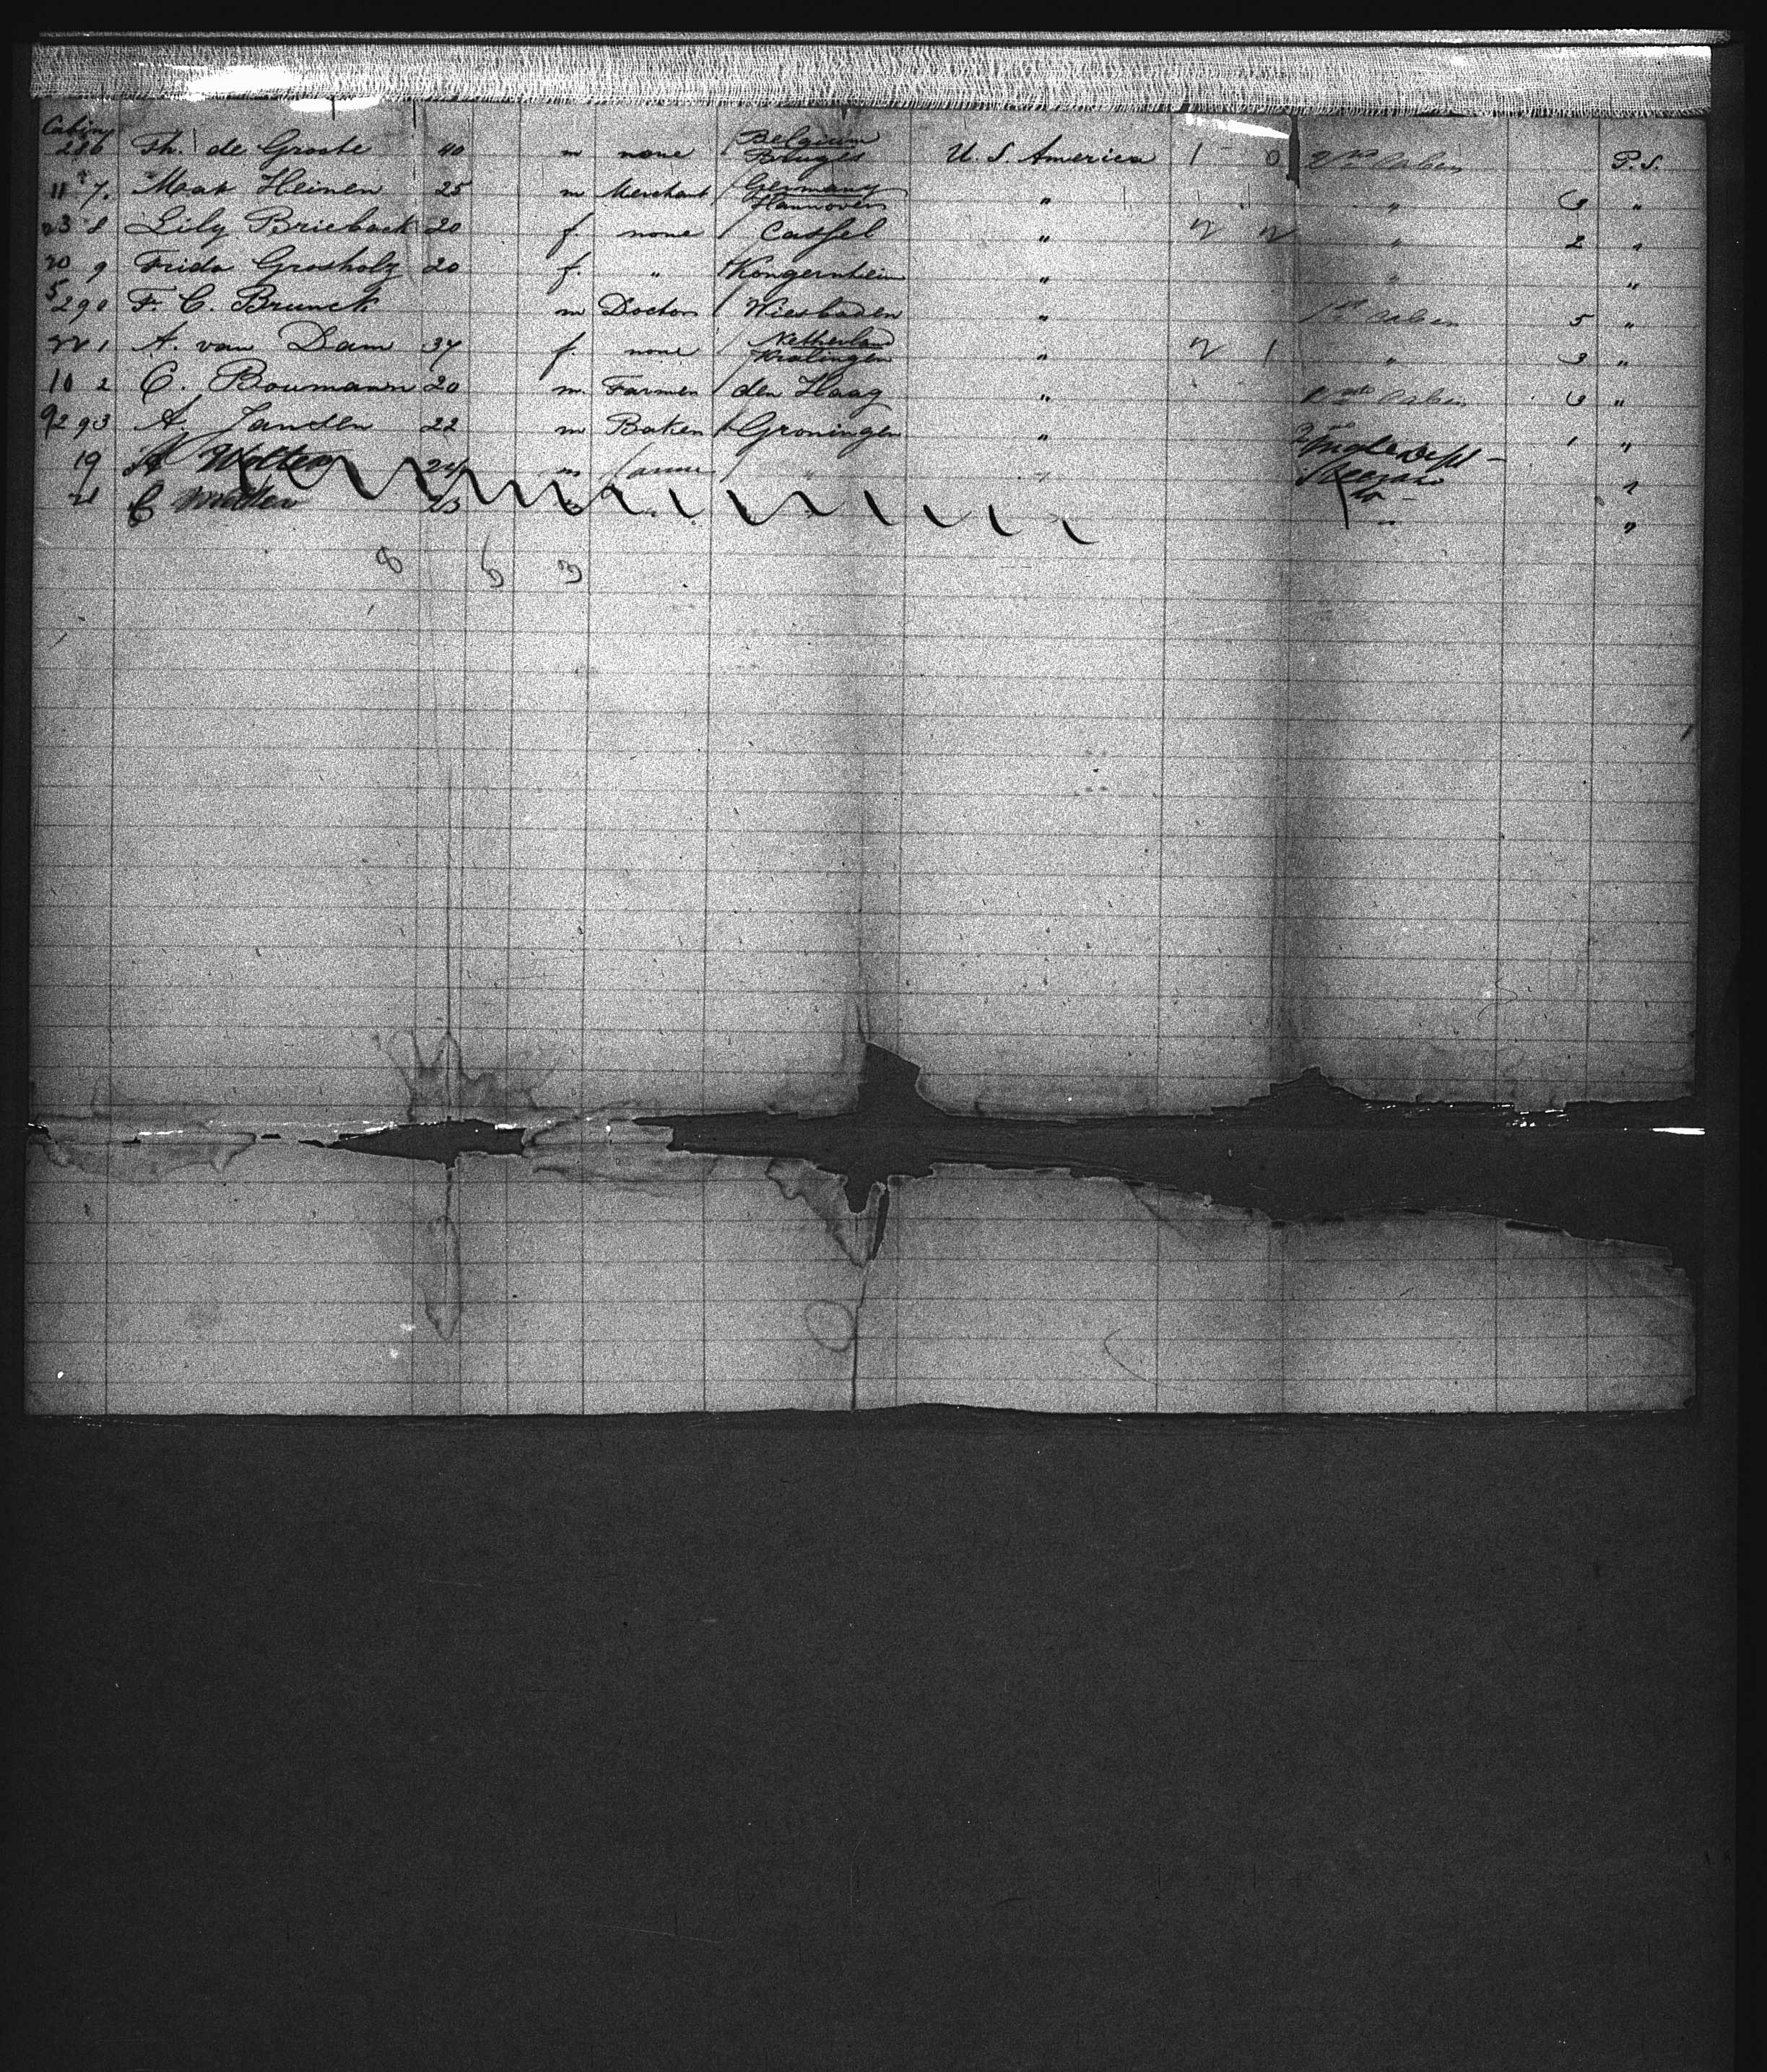 Cabin
286 Th. de Groote 40 m none Belgium Bruges U. S. America 1 0 2nd Cabin P. S.
11 7. Max Heimen 25 m Merchant Germany Hannover " " 3 "
23 8 Lily Brieback 20 f. none Cassel " 2 2 " 2 "
20 9 Frida Grosholz 20 f. " Kongernheim " " "
5 290 F. C. Brunck m Doctor Wiesbaden " 1st Cabin 5 "
22 1 A. van Dam 37 f. none Netherland Kralingen " 2 1 " 3 "
10 2 C. Boumann 20 m. Farmer den Haag " Cabin 3 "
9 293 A. Jansen 22 m Baker Groningen " 1 "
19 A Wolter 24 m " " "
21 C 23 "
8 6 3